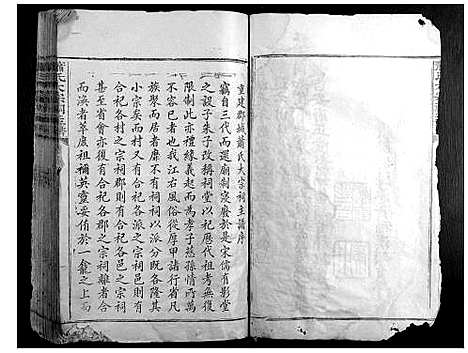 重建郡城蕭氏大宗祠主譜序
竊自三代而還廟制寖廢於是宋儒有影堂
之設子朱子改稱祠堂以祀歷代祖考無復
限制此亦禮緣義起而為孝子慈孫情所萬
不容已者也我江右風俗從厚甲諸行省凡
族聚而居者靡不有祠祠以派分既各隆其
小宗矣而村又有合祀各派之宗祠邑則有
合祀各村之宗祠郡則有合祀各邑之宗祠
甚至省會亦莫不有合祀各郡之宗祠離者合
而渙者萃庶祖禰英靈妥侑於一龕之上而
蕭氏大宗祠主譜